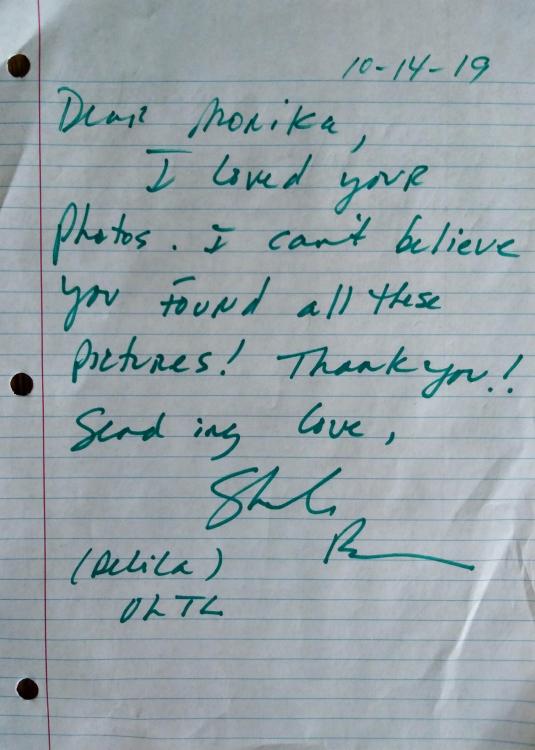 10-14-19
Dear Monika,
I loved your
photos. I can't believe
you found all these
pictures! Thank you!!
Sending love,
(Delila)
OLTL